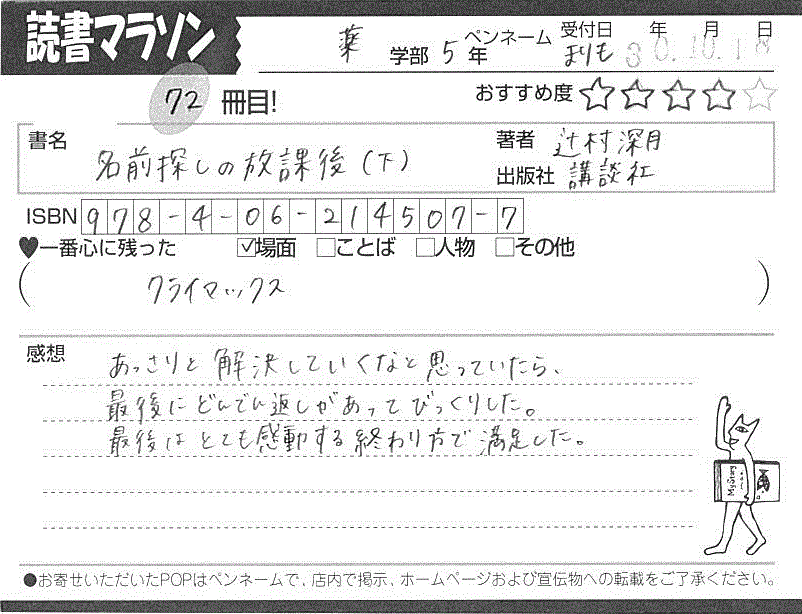 読書マラソン
薬 学部 5 年 ペンネーム まりも 受付日 30年10月18日
72 冊目! おすすめ度 ★★★★☆
書名 名前探しの放課後(下)
著者 辻村深月
出版社 講談社
ISBN 978-4-06-214507-7
♥一番心に残った ☑場面 □ことば □人物 □その他
( クライマックス )
感想 あっさりと解決していくなと思っていたら、
最後にどんでん返しがあってびっくりした。
最後はとても感動する終わり方で満足した。
●お寄せいただいたPOPはペンネームで、店内で掲示、ホームページおよび宣伝物への転載をご了承ください。